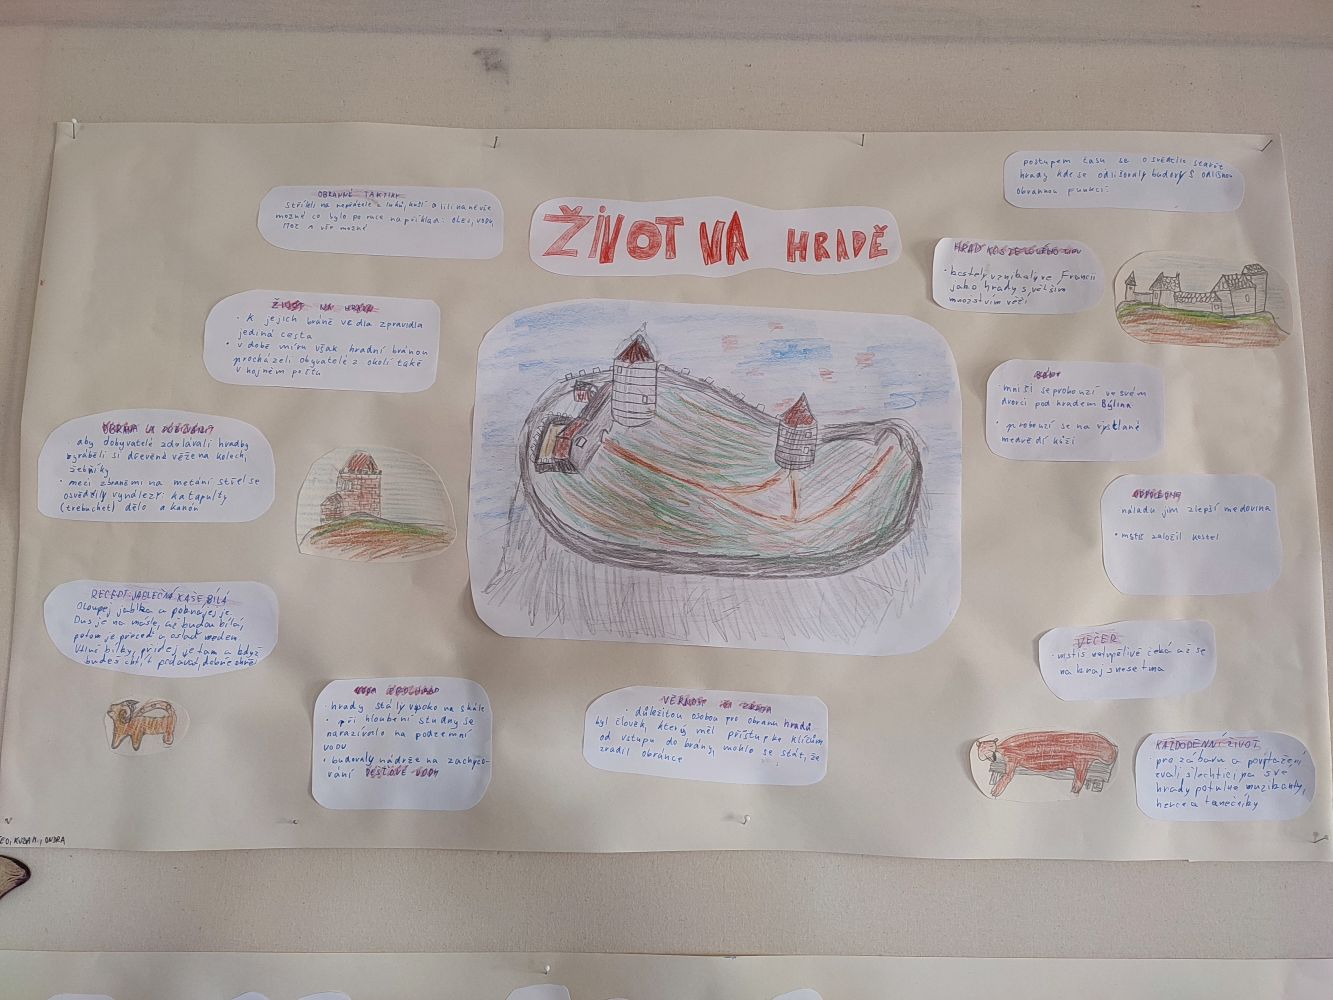 ŽIVOT NA HRADĚ
OBRANNÉ TAKTIKY
stříleli na nepřátele z luků, kuší a lili na ně vše
možné co bylo po ruce například: OLEJ, VODU,
MOČ a vše možné
ŽIVOT NA HRADĚ
• K jejich bráně vedla zpravidla
jediná cesta
• v době míru však hradní bránou
procházeli obyvatelé z okolí také
v hojném počtu
• aby dobyvatelé zdolávali hradby
vyráběli si dřevěné věže na kolech,
žebříky
• mezi zbraněmi na metání střel se
osvědčily vynálezy: katapulty
(trebuchet) dělo a kanon
RECEPT-JABLEČNÁ KAŠE BÍLÁ
Oloupej jablka a pokrájej je.
Dus je na másle, až budou bílá,
potom je přeceď a oslaď medem
Ušlehej bílky, přidej je tam a když
budeš chtít podávat, dobře ohřej
VODA PRO HRAD
• hrady stály vysoko na skále
• při hloubení studny se
naráželo na podzemní
vodu
• budovaly nádrže na zachyco-
vání DEŠŤOVÉ VODY
VĚRNOST ZA ZRADU
• důležitou osobou pro obranu hradů
byl člověk, který měl přístup ke klíčům
od vstupu do brány, mohlo se stát, že
zradil obránce
postupem času se osvědčilo stavět
hrady kde se odlišovaly budovy s odlišnou
obrannou funkcí.
HRAD
• bastely vznikaly ve Francii
jako hrady s větším
množstvím věží
RÁNO
• mniši se probouzí ve svém
dvorci pod hradem Bylina
• probouzí se na vystlané
medvědí kůži
ODPOLEDNE
• náladu jim zlepší medovina
• mstis založil kostel
VEČER
• mstis netrpělivě čeká až se
na kraj snese tma
KAŽDODENNÍ ŽIVOT
• pro zábavu a povyražení
zvali šlechtici na své
hrady potulné muzikanty,
herce a tanečníky
ONDRA